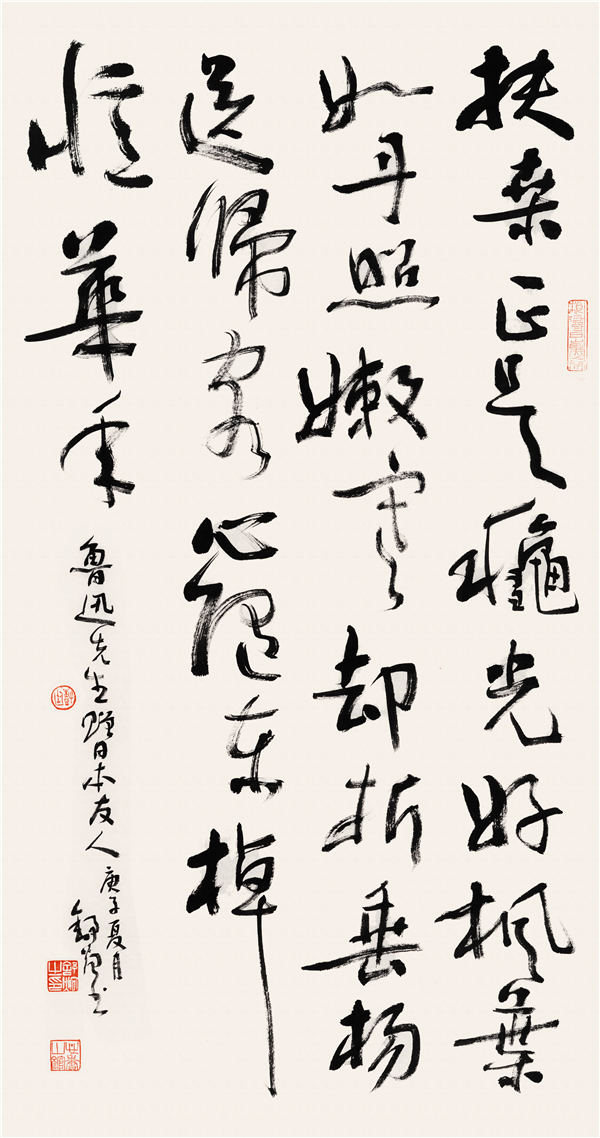 扶桑正是龝光好楓葉
如丹照嫩寒却折垂杨
送歸客心随东棹
憶華年
鲁迅先生赠日本友人
庚子夏月
舒炯书